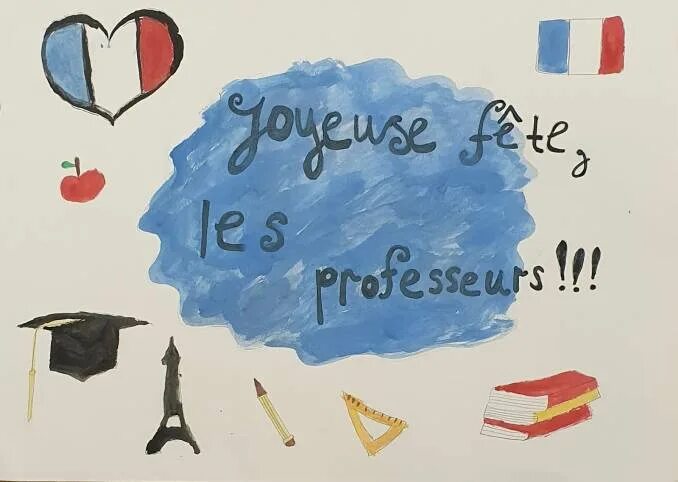 Joyeuse fête,
les
professeurs!!!